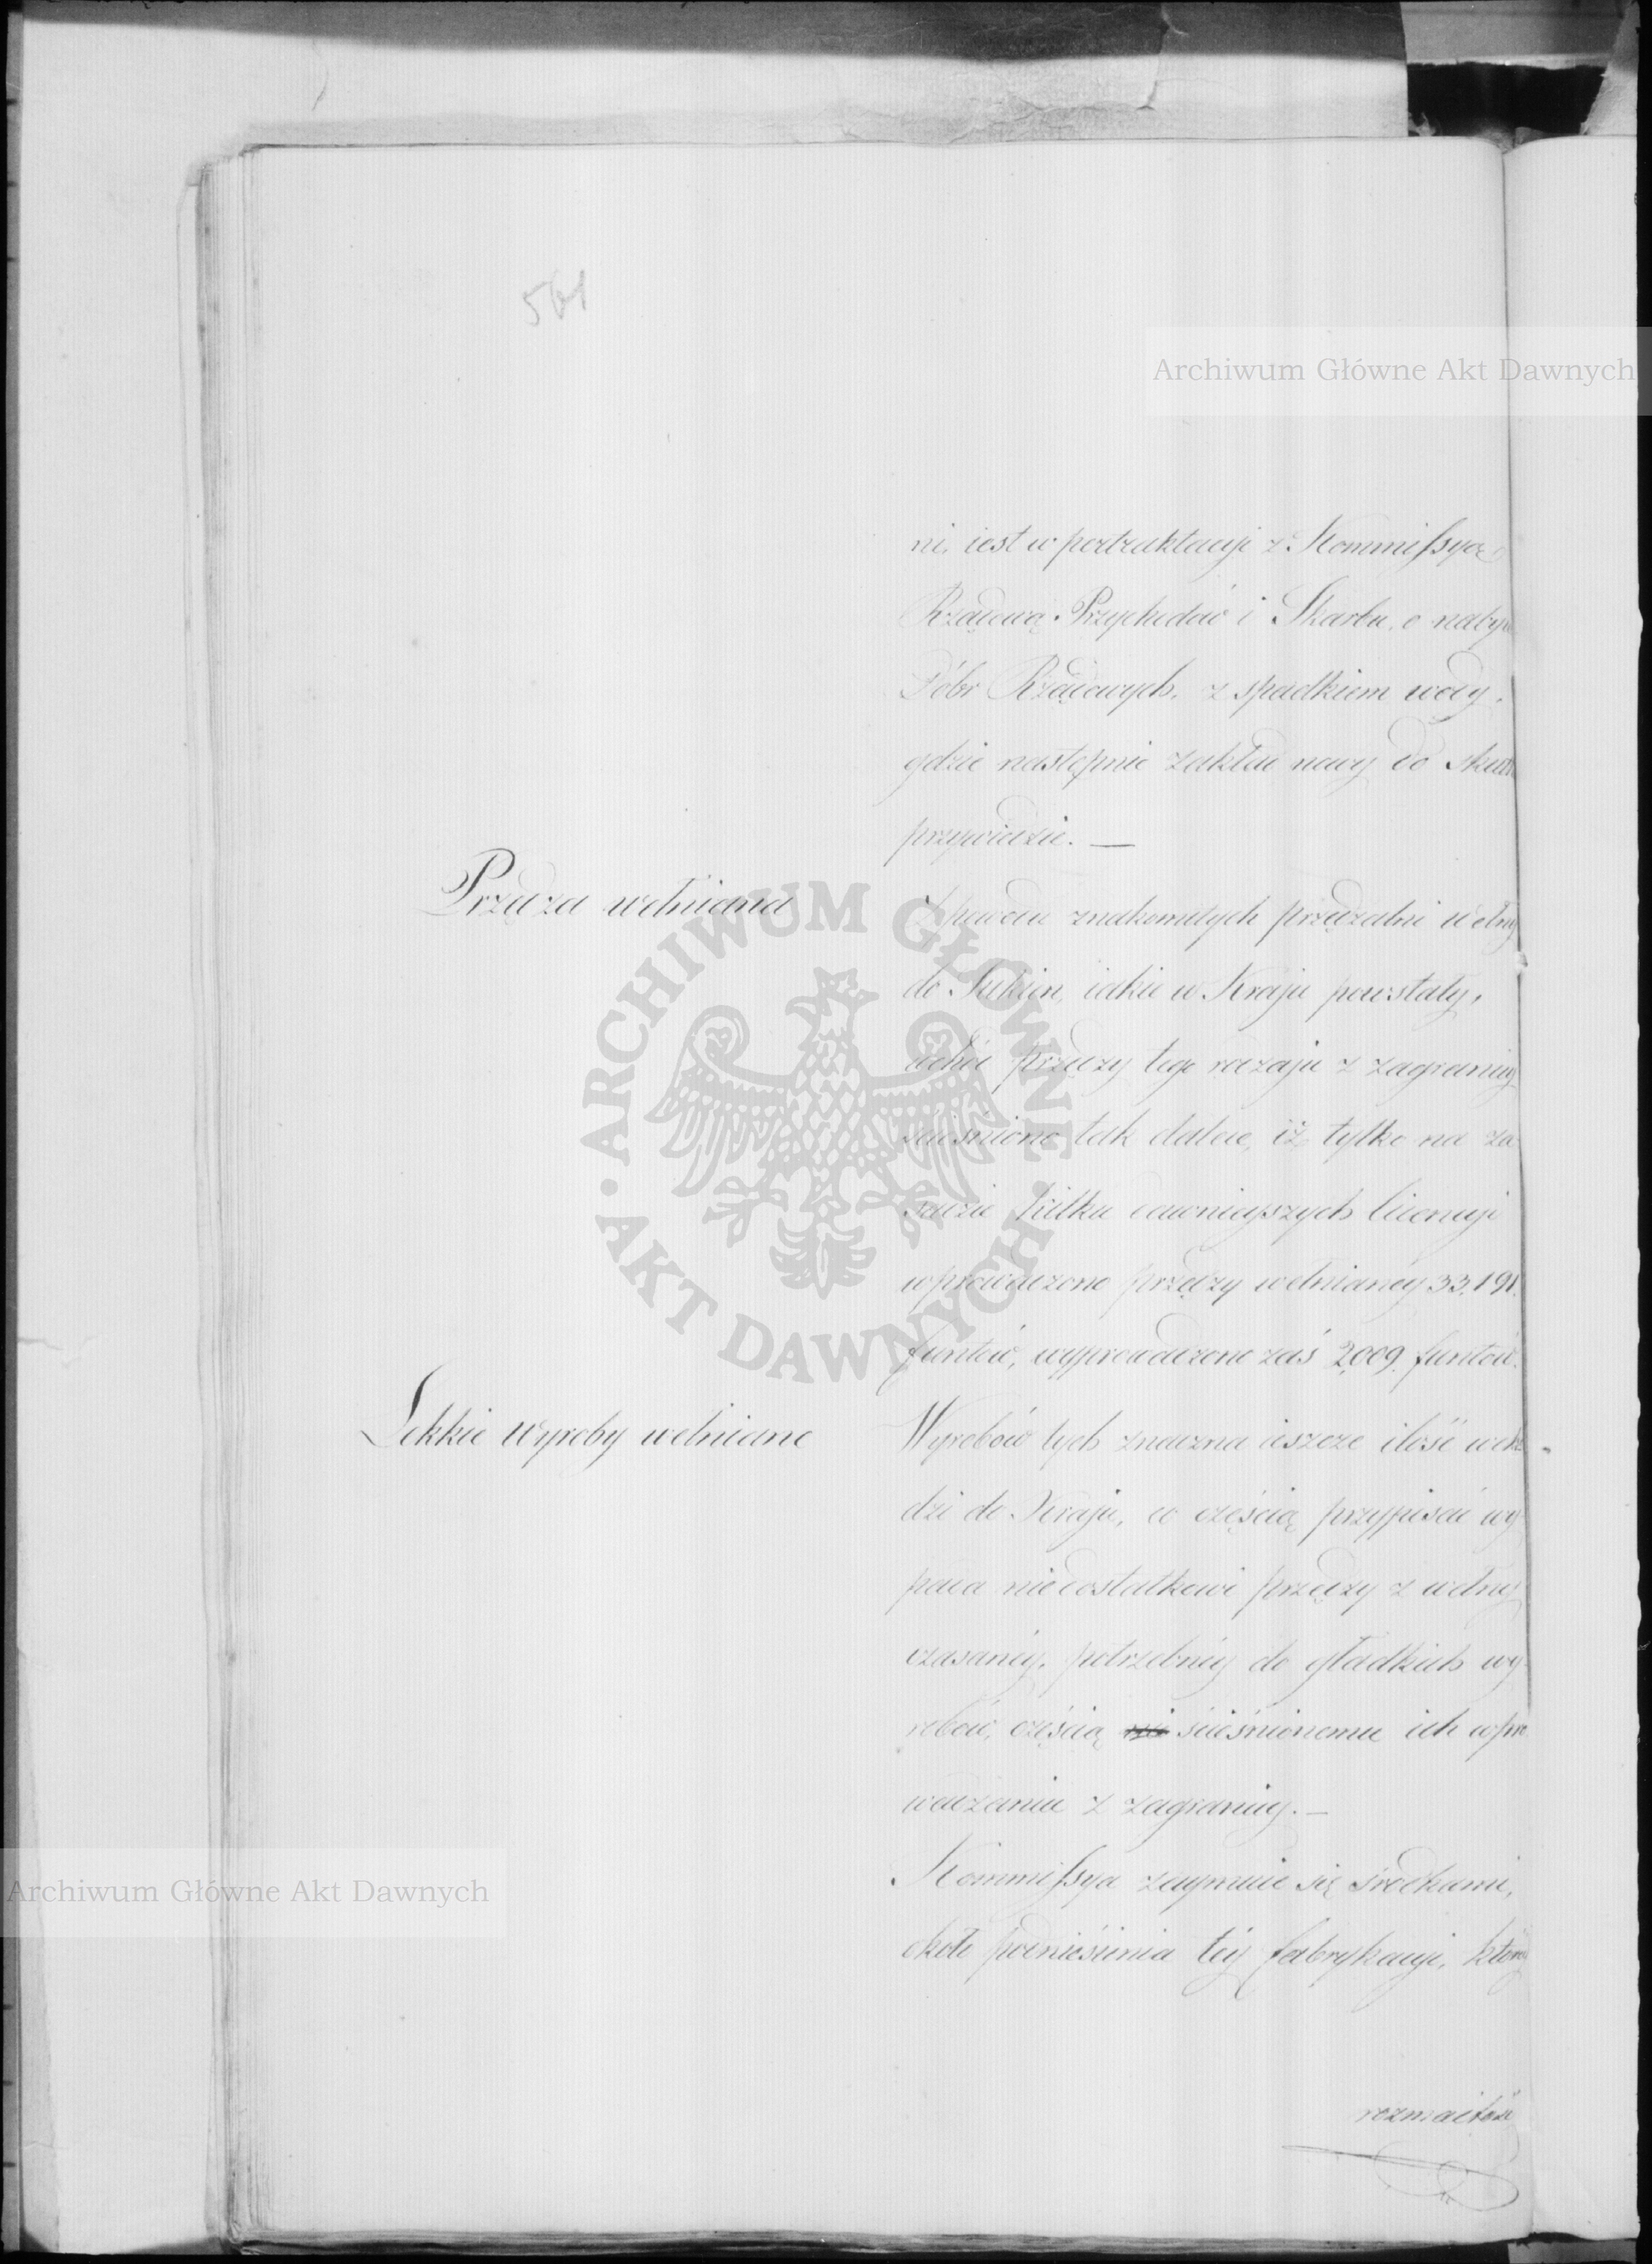 561
Archiwum Główne Akt Dawnych
ni, iest w pertraktacyi z Kommissyą
Rządową Przychodów i Skarbu, o nabyc
Dóbr Rządowych, z spadkiem wody,
gdzie następnie zakład nowy do skut
przywiedzie. —
Przędza wełniana
Z powodu znakomitych przędzalni wełny
do Sukien, iakie w Kraju powstały,
weście przędzy tego rodzaju z zagranicy
ścieśniono tak dalece, iż tylko na za
sadzie kilku dawnieyszych licencyi
wprowadzono przędzy wełnianéy 33,191.
funtów, wyprowadzono zaś 2,009. funtów.
Lekkie wyroby wełniane
Wyrobów tych znaczna ieszcze ilość wcho
dzi do Kraju, co częścią przypisać wy
pada niedostatkowi przędzy z wełny
czasanéy, potrzebnéy do gładkich wy
robów, częścią ścieśnionemu ich wpro
wadzaniu z zagranicy. —
Kommissya zaymuie się środkami,
około podniesienia téy fabrykacyi, któréy
rozmaitość
Archiwum Główne Akt Dawnych
ARCHIWUM GŁÓWNE AKT DAWNYCH